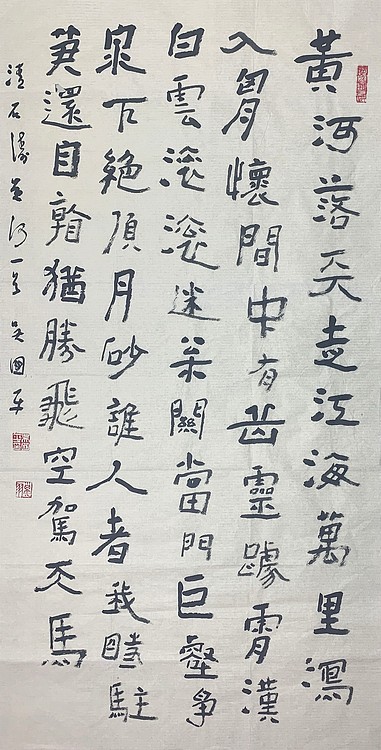 黄河落天走江海萬里瀉
入胷懷間中有靈霄漢
白雲滚滚迷關當門巨壑爭
泉下絶頂月砂誰人者我駐
還自猶勝飛空駕天馬
清石濤黄河一首吳國平